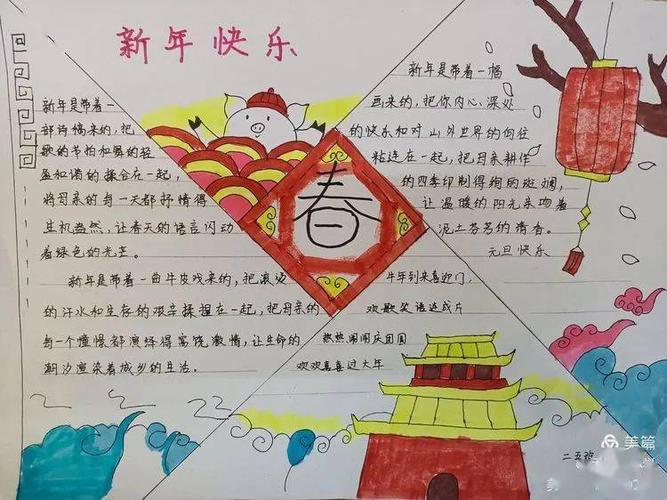 新年快乐
新年是带着一
部诗幅来的，把
歌的节拍和舞的轻
盈和谐的糅合在一起，
将母亲的每一天都抒情得
生机盎然，让春天的语言闪动
着绿色的光芒。
新年是带着一曲牛皮戏来的，把滚烫
的汗水和生存的艰辛揉捏在一起，把母亲的
每一个憧憬都演绎得富饶激情，让生命的
潮汐渲染着城乡的生活。
春
新年是带着一幅
画来的，把你内心深处
的快乐和对山外世界的向往
粘连在一起，把母亲耕作
的四季印制得绚丽斑斓，
让温暖的阳光来吻着
泥土芬芳的清香。
元旦快乐
牛年到来喜迎门，
欢歌笑语达成片
热热闹闹庆团圆
欢欢喜喜过大年
二五班
美篇